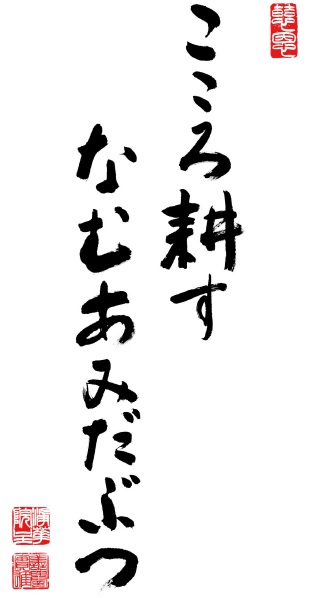 こころ耕す
なむあみだぶつ